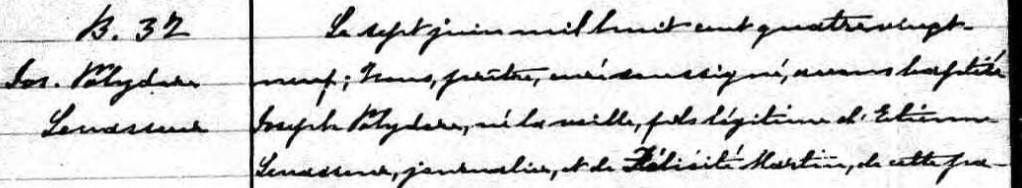 B. 32
Jos. Polydore
Levasseur
Le sept juin mil huit cent quatre vingt-
neuf; Nous, prêtre, curé soussigné, avons baptisé
Joseph Polydore, né la veille, fils légitime d'Etienne
Levasseur, journalier, et de Félicité Martin, de cette pa-